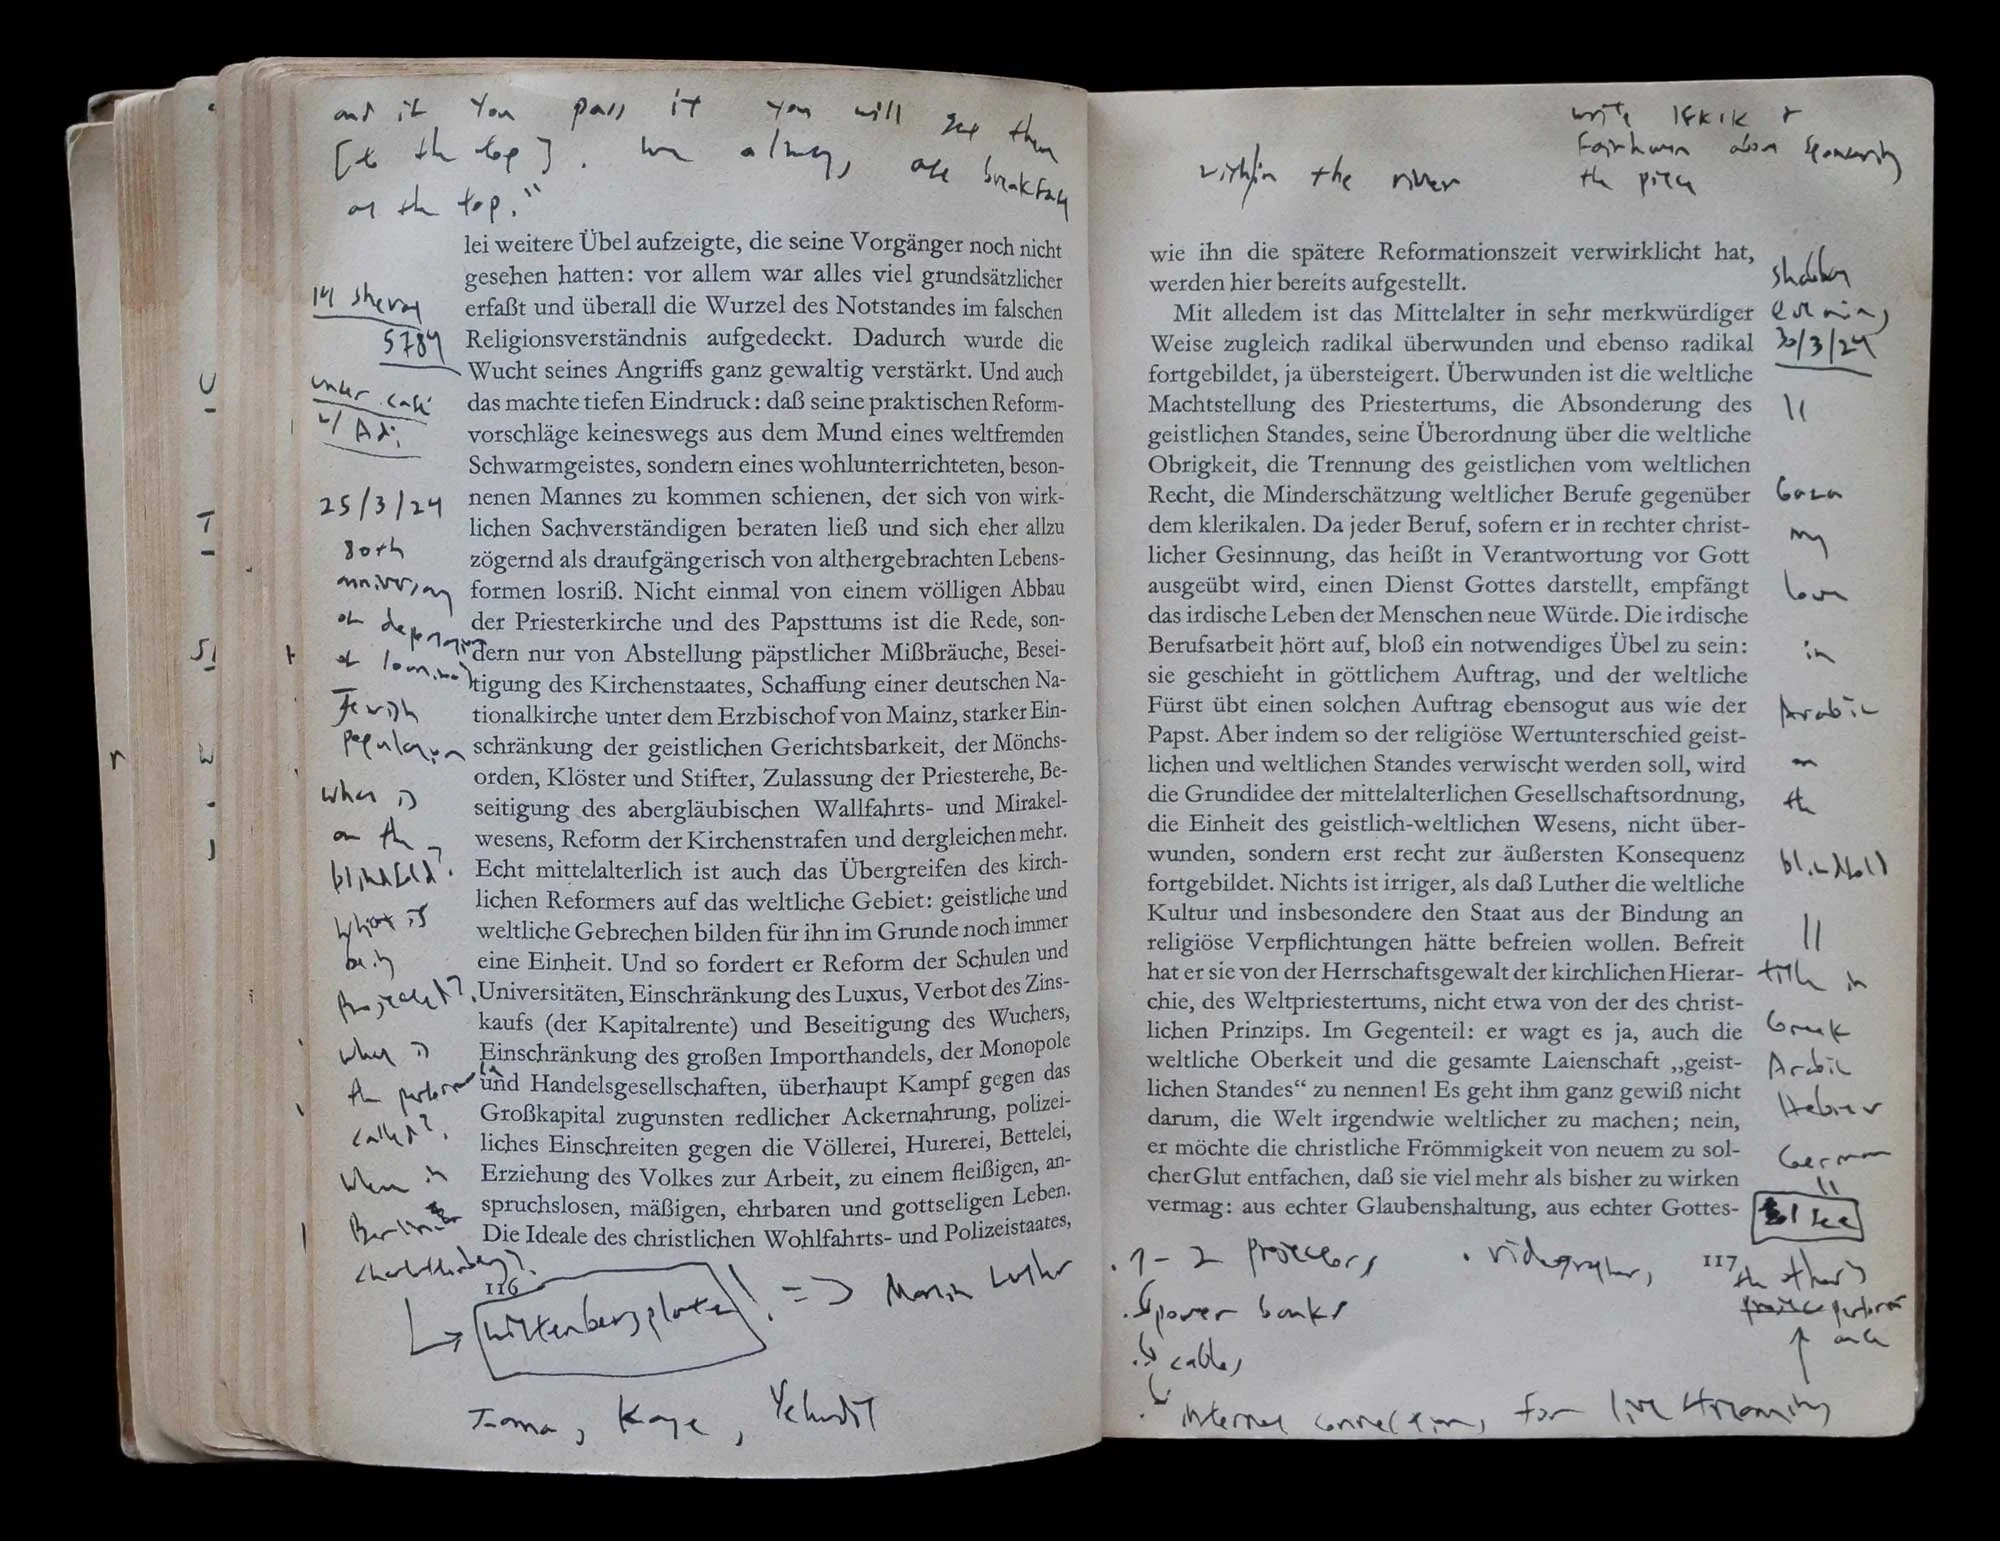 and if you pass it you will see them
[to the top]. we always are breakfast
on the top."
14
5784
under café
w/ Adi
25/3/24
80th
anniversary
of deportation
of
Jewish
population
what is
on the
blindfold?
what is
being
projected?
what is
the performance
called?
where in
Berlin
Charlottenburg?
lei weitere Übel aufzeigte, die seine Vorgänger noch nicht
gesehen hatten: vor allem war alles viel grundsätzlicher
erfaßt und überall die Wurzel des Notstandes im falschen
Religionsverständnis aufgedeckt. Dadurch wurde die
Wucht seines Angriffs ganz gewaltig verstärkt. Und auch
das machte tiefen Eindruck: daß seine praktischen Reform-
vorschläge keineswegs aus dem Mund eines weltfremden
Schwarmgeistes, sondern eines wohlunterrichteten, beson-
nenen Mannes zu kommen schienen, der sich von wirk-
lichen Sachverständigen beraten ließ und sich eher allzu
zögernd als draufgängerisch von althergebrachten Lebens-
formen losriß. Nicht einmal von einem völligen Abbau
der Priesterkirche und des Papsttums ist die Rede, son-
dern nur von Abstellung päpstlicher Mißbräuche, Besei-
tigung des Kirchenstaates, Schaffung einer deutschen Na-
tionalkirche unter dem Erzbischof von Mainz, starker Ein-
schränkung der geistlichen Gerichtsbarkeit, der Mönchs-
orden, Klöster und Stifter, Zulassung der Priesterehe, Be-
seitigung des abergläubischen Wallfahrts- und Mirakel-
wesens, Reform der Kirchenstrafen und dergleichen mehr.
Echt mittelalterlich ist auch das Übergreifen des kirch-
lichen Reformers auf das weltliche Gebiet: geistliche und
weltliche Gebrechen bilden für ihn im Grunde noch immer
eine Einheit. Und so fordert er Reform der Schulen und
Universitäten, Einschränkung des Luxus, Verbot des Zins-
kaufs (der Kapitalrente) und Beseitigung des Wuchers,
Einschränkung des großen Importhandels, der Monopole
und Handelsgesellschaften, überhaupt Kampf gegen das
Großkapital zugunsten redlicher Ackernahrung, polizei-
liches Einschreiten gegen die Völlerei, Hurerei, Bettelei,
Erziehung des Volkes zur Arbeit, zu einem fleißigen, an-
spruchslosen, mäßigen, ehrbaren und gottseligen Leben.
Die Ideale des christlichen Wohlfahrts- und Polizeistaates,
116
Wittenbergplatz! => Martin Luther
Kaye, Yehudit
within the river
write
the piece
wie ihn die spätere Reformationszeit verwirklicht hat,
werden hier bereits aufgestellt.
Mit alledem ist das Mittelalter in sehr merkwürdiger
Weise zugleich radikal überwunden und ebenso radikal
fortgebildet, ja übersteigert. Überwunden ist die weltliche
Machtstellung des Priestertums, die Absonderung des
geistlichen Standes, seine Überordnung über die weltliche
Obrigkeit, die Trennung des geistlichen vom weltlichen
Recht, die Minderschätzung weltlicher Berufe gegenüber
dem klerikalen. Da jeder Beruf, sofern er in rechter christ-
licher Gesinnung, das heißt in Verantwortung vor Gott
ausgeübt wird, einen Dienst Gottes darstellt, empfängt
das irdische Leben der Menschen neue Würde. Die irdische
Berufsarbeit hört auf, bloß ein notwendiges Übel zu sein:
sie geschieht in göttlichem Auftrag, und der weltliche
Fürst übt einen solchen Auftrag ebensogut aus wie der
Papst. Aber indem so der religiöse Wertunterschied geist-
lichen und weltlichen Standes verwischt werden soll, wird
die Grundidee der mittelalterlichen Gesellschaftsordnung,
die Einheit des geistlich-weltlichen Wesens, nicht über-
wunden, sondern erst recht zur äußersten Konsequenz
fortgebildet. Nichts ist irriger, als daß Luther die weltliche
Kultur und insbesondere den Staat aus der Bindung an
religiöse Verpflichtungen hätte befreien wollen. Befreit
hat er sie von der Herrschaftsgewalt der kirchlichen Hierar-
chie, des Weltpriestertums, nicht etwa von der des christ-
lichen Prinzips. Im Gegenteil: er wagt es ja, auch die
weltliche Oberkeit und die gesamte Laienschaft „geist-
lichen Standes“ zu nennen! Es geht ihm ganz gewiß nicht
darum, die Welt irgendwie weltlicher zu machen; nein,
er möchte die christliche Frömmigkeit von neuem zu sol-
cher Glut entfachen, daß sie viel mehr als bisher zu wirken
vermag: aus echter Glaubenshaltung, aus echter Gottes-
117
evening
30/3/24
Gaza
my
love
in
Arabic
on
the
blindfold
title in
Greek
Arabic
Hebrew
German
I see
the others
performance
. 1-2 projectors
. videographers
. power banks
. cables
. internet connection, for live streaming